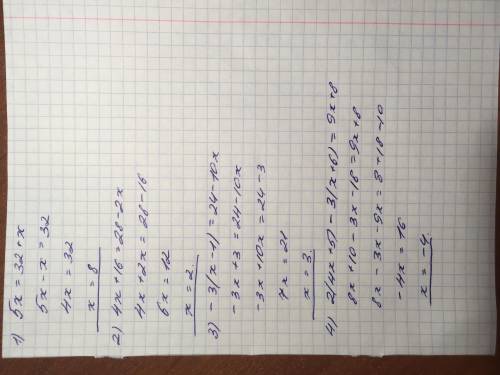 1) 5x = 32 + x
5x - x = 32
4x = 32
x = 8
2) 4x + 16 = 28 - 2x
4x + 2x = 28 - 16
6x = 12
x = 2.
3) - 3(x - 1) = 24 - 10x
- 3x + 3 = 24 - 10x
- 3x + 10x = 24 - 3
7x = 21
x = 3.
4) 2(4x + 5) - 3(x + 6) = 9x + 8
8x + 10 - 3x - 18 = 9x + 8
8x - 3x - 9x = 8 + 18 - 10
- 4x = 16
x = - 4.